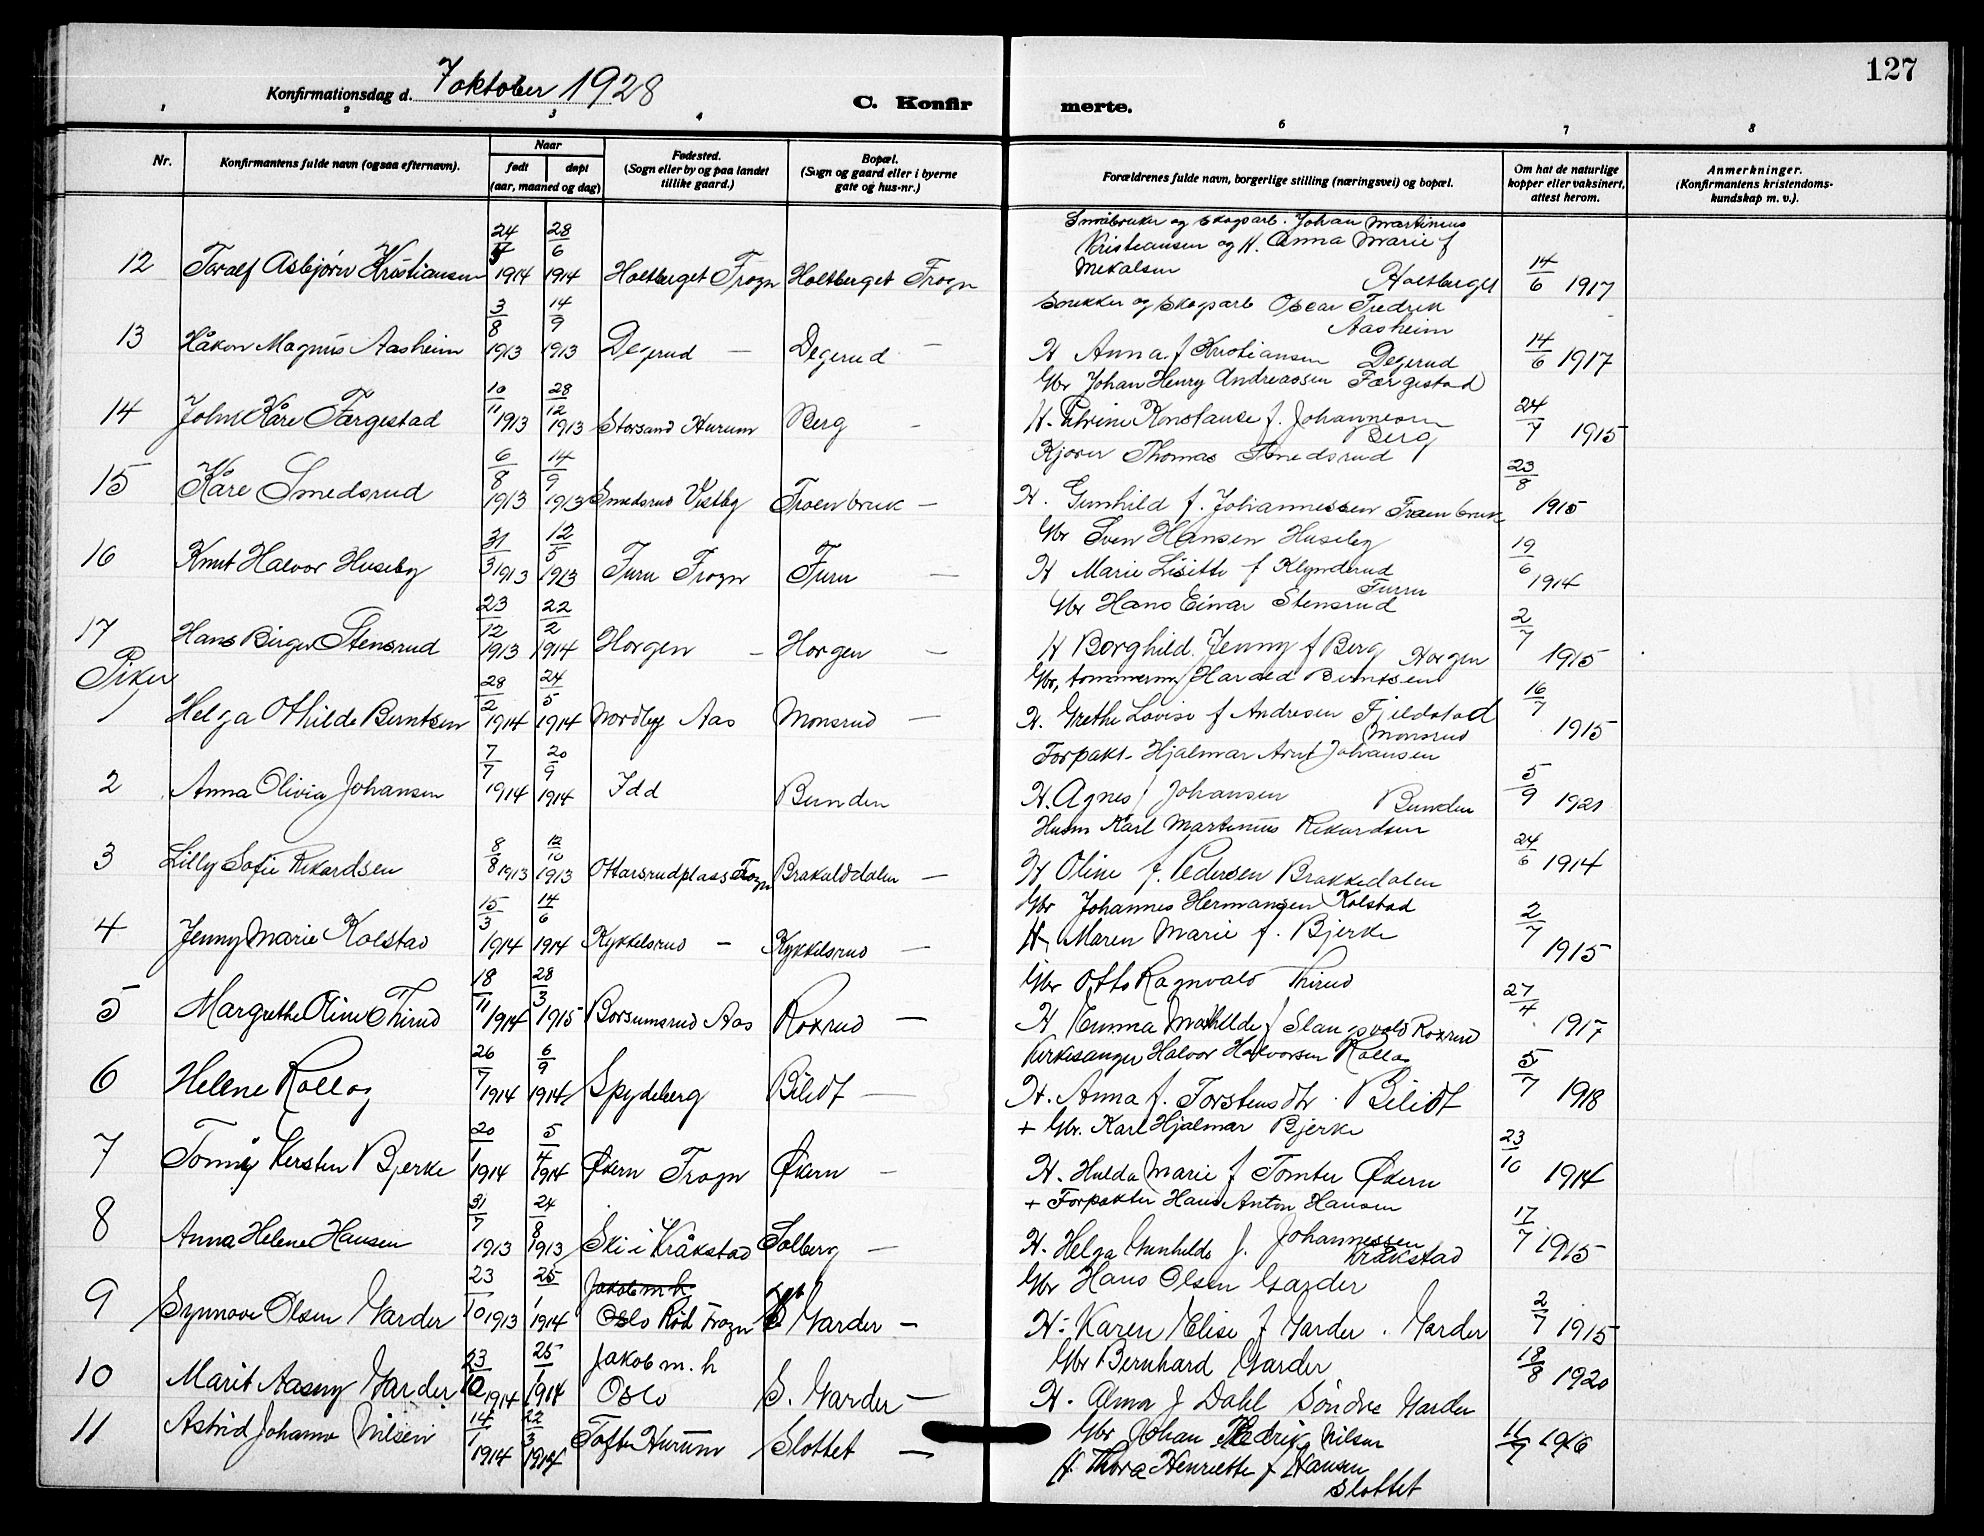 127
Konfirmationsdag d. 7 oktober 1928
C. Konfirmerte.
1 2 3 4 6 7 8
Nr.
Konfirmantens fulde navn (ogsaa efternavn).
Naar
født døpt
(aar, maaned og dag)
Fødested.
(Sogn eller by og paa landet
tillike gaard.)
Bopæl.
(Sogn og gaard eller i byerne
gate og hus-nr.)
Forældrenes fulde navn, borgerlige stilling (næringsvei) og bopæl.
Om hat de naturlige
kopper eller vaksinert,
attest herom.
Anmerkninger.
(Konfirmantens kristendoms-
kundskap m. v.).
12 Toralf Asbjørn Kristiansen 24/7 1914 28/6 1914 Holtberget Frogn Holtberget Frogn
Småbruker og skogsarb. Johan Martinius
Kristiansen og H. Anna Marie f
Mikalsen
Holtberget 14/6 1917
13 Håkon Magnus Aasheim 3/8 1913 14/9 1913 Degerud — Degerud —
Snekker og skogsarb Oscar Fredrik
Aasheim
H Anna f Kristiansen Degerud 14/6 1917
14 John Kåre Færgestad 10/11 1913 28/12 1913 Storsand Hurum Berg -
Gbr Johan Henry Andreassen Færgestad
H. Konstanse f. Johannesen
Berg 24/7 1915
15 Kåre Smedsrud 6/8 1913 14/9 1913 Smedsrud Vestby Troenbruk —
Kjører Thomas Smedsrud
H. Gunhild f. Johannessen Traenbruk 23/8 1915
16 Knut Halvor Huseby 31/3 1913 12/5 1913 Furu Frogn Furu —
Gbr Sven Hansen Huseby
H Marie Lisette f Klynderud
Furru 19/6 1914
17 Hans Birger Stensrud 23/12 1913 22/2 1914 Horgen - Horgen —
Gbr Hans Einar Stensrud
H Borghild Jenny f Berg Horgen 2/7 1915
Piker
1 Helga Othilde Berntsen 28/2 1914 24/5 1914 Nordby Aas Monsrud —
Gbr, tømmerm Harald Berntsen
H. Grethe Lovise f Andresen Fjeldstad
Monsrud 16/7 1915
2 Anna Olivia Johansen 7/7 1914 20/9 1914 Idd Bunden
Forpakt. Hjalmar Arnt Johansen
H. Agnes f Johansen Bunden 5/9 1921
3 Lilly Sofie Rikardsen 8/8 1913 12/10 1913 Ottarsrudplass Frogn Brakulddalen —
Husm Karl Martinius Rikardsen
H Oline f. Pedersen Brakkedalen 24/6 1914
4 Jenny Marie Kolstad 15/3 1914 14/6 1914 Kykkelsrud — Kykkelsrud —
Gbr Johannes Hermansen Kolstad
H. Maren Marie f. Bjerke 2/7 1915
5 Margrethe Oline Thirud 18/11 1914 28/3 1915 Borsumsrud Aas Roxrud —
Gbr Otto Ragnvald Thirud
H Emma Mathilde f Slangsvold Roxrud 27/4 1917
6 Helene Rollag 26/7 1914 6/9 1914 Spydeberg Bilidt —
Kirkesanger Halvor Halvorsen Rollag
H. Anna f. Torstensdtr. Bilidt 5/7 1918
7 Tonny Kersten Bjerke 20/1 1914 5/4 1914 Økern Frogn Økern —
+ Gbr. Karl Hjalmar Bjerke
H. Hulda Marie f Tomter Økern 23/10 1914
8 Anna Helene Hansen 31/7 1913 24/8 1913 Ski i Kråkstad Solberg —
+ Forpakter Hans Anton Hansen
H. Helga Gunhilde f. Johannessen
Kråkstad 17/7 1915
9 Synnøve Olsen Garder 23/10 1913 25/1 1914 Jakob m.h Oslo Rød Frogn Garder —
Gbr Hans Olsen Garder
H. Karen Elise f Garder. Garder 2/7 1915
10 Marit Aasny Garder 23/10 1914 25/1 1914 Jakob m.h Oslo S. Garder —
Gbr Bernhard Garder
H. Alma f Dahl Søndre Garder 18/8 1920
11 Astrid Johanne Nilsen 14/1 1914 22/3 1914 Tofte Hurum Slottet —
Gbr Johan Fredrik Nilsen
H. Thora Henriette f Hansen
Slottet 11/9 1916